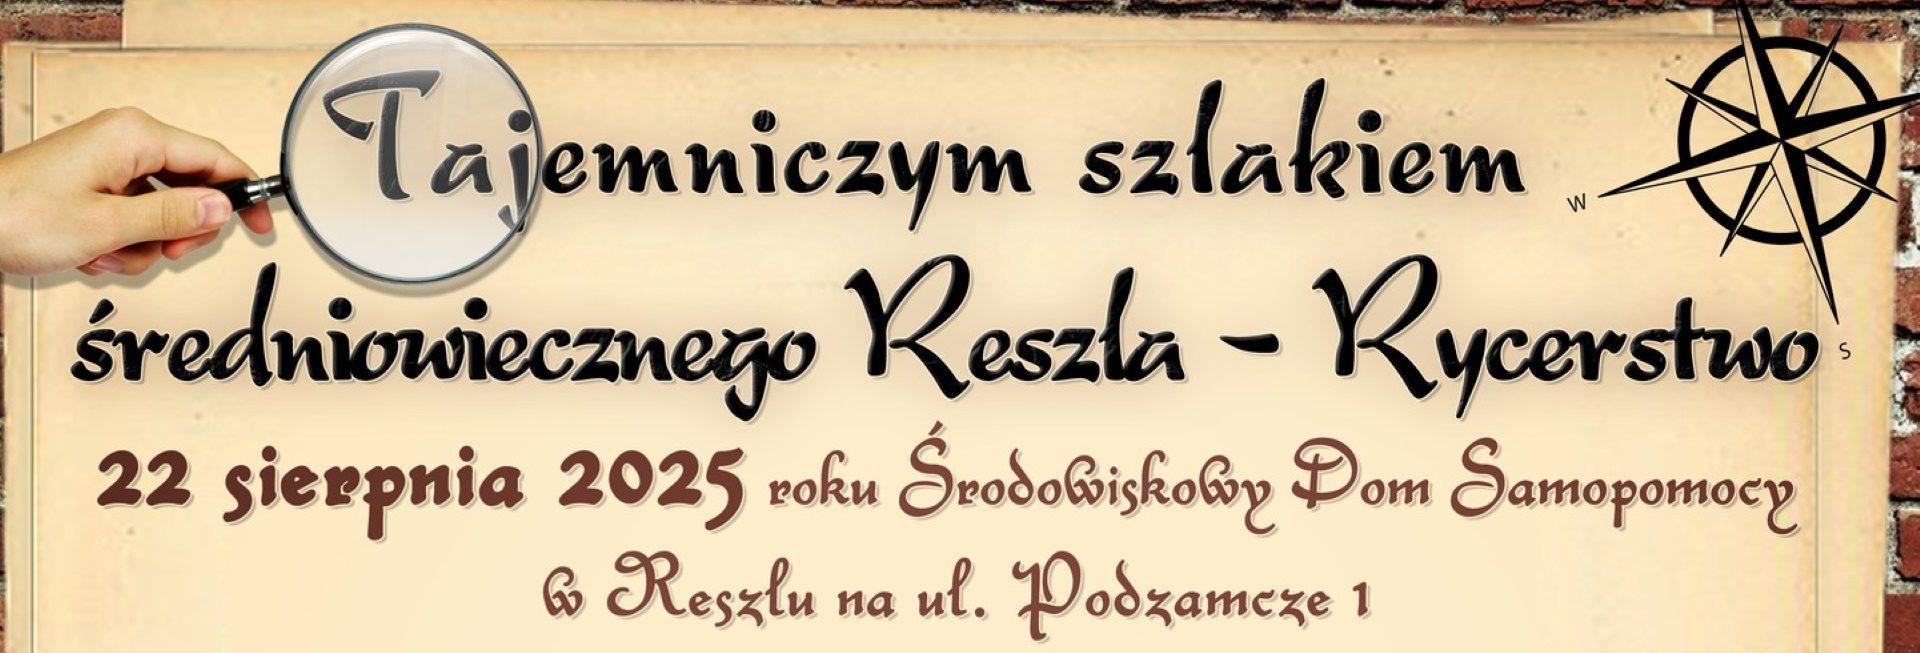 Tajemniczym szlakiem
W
średniowiecznego Reszla - Rycerstwo
S
22 sierpnia 2025 roku Środowiskowy Dom Samopomocy
w Reszlu na ul. Podzamcze 1